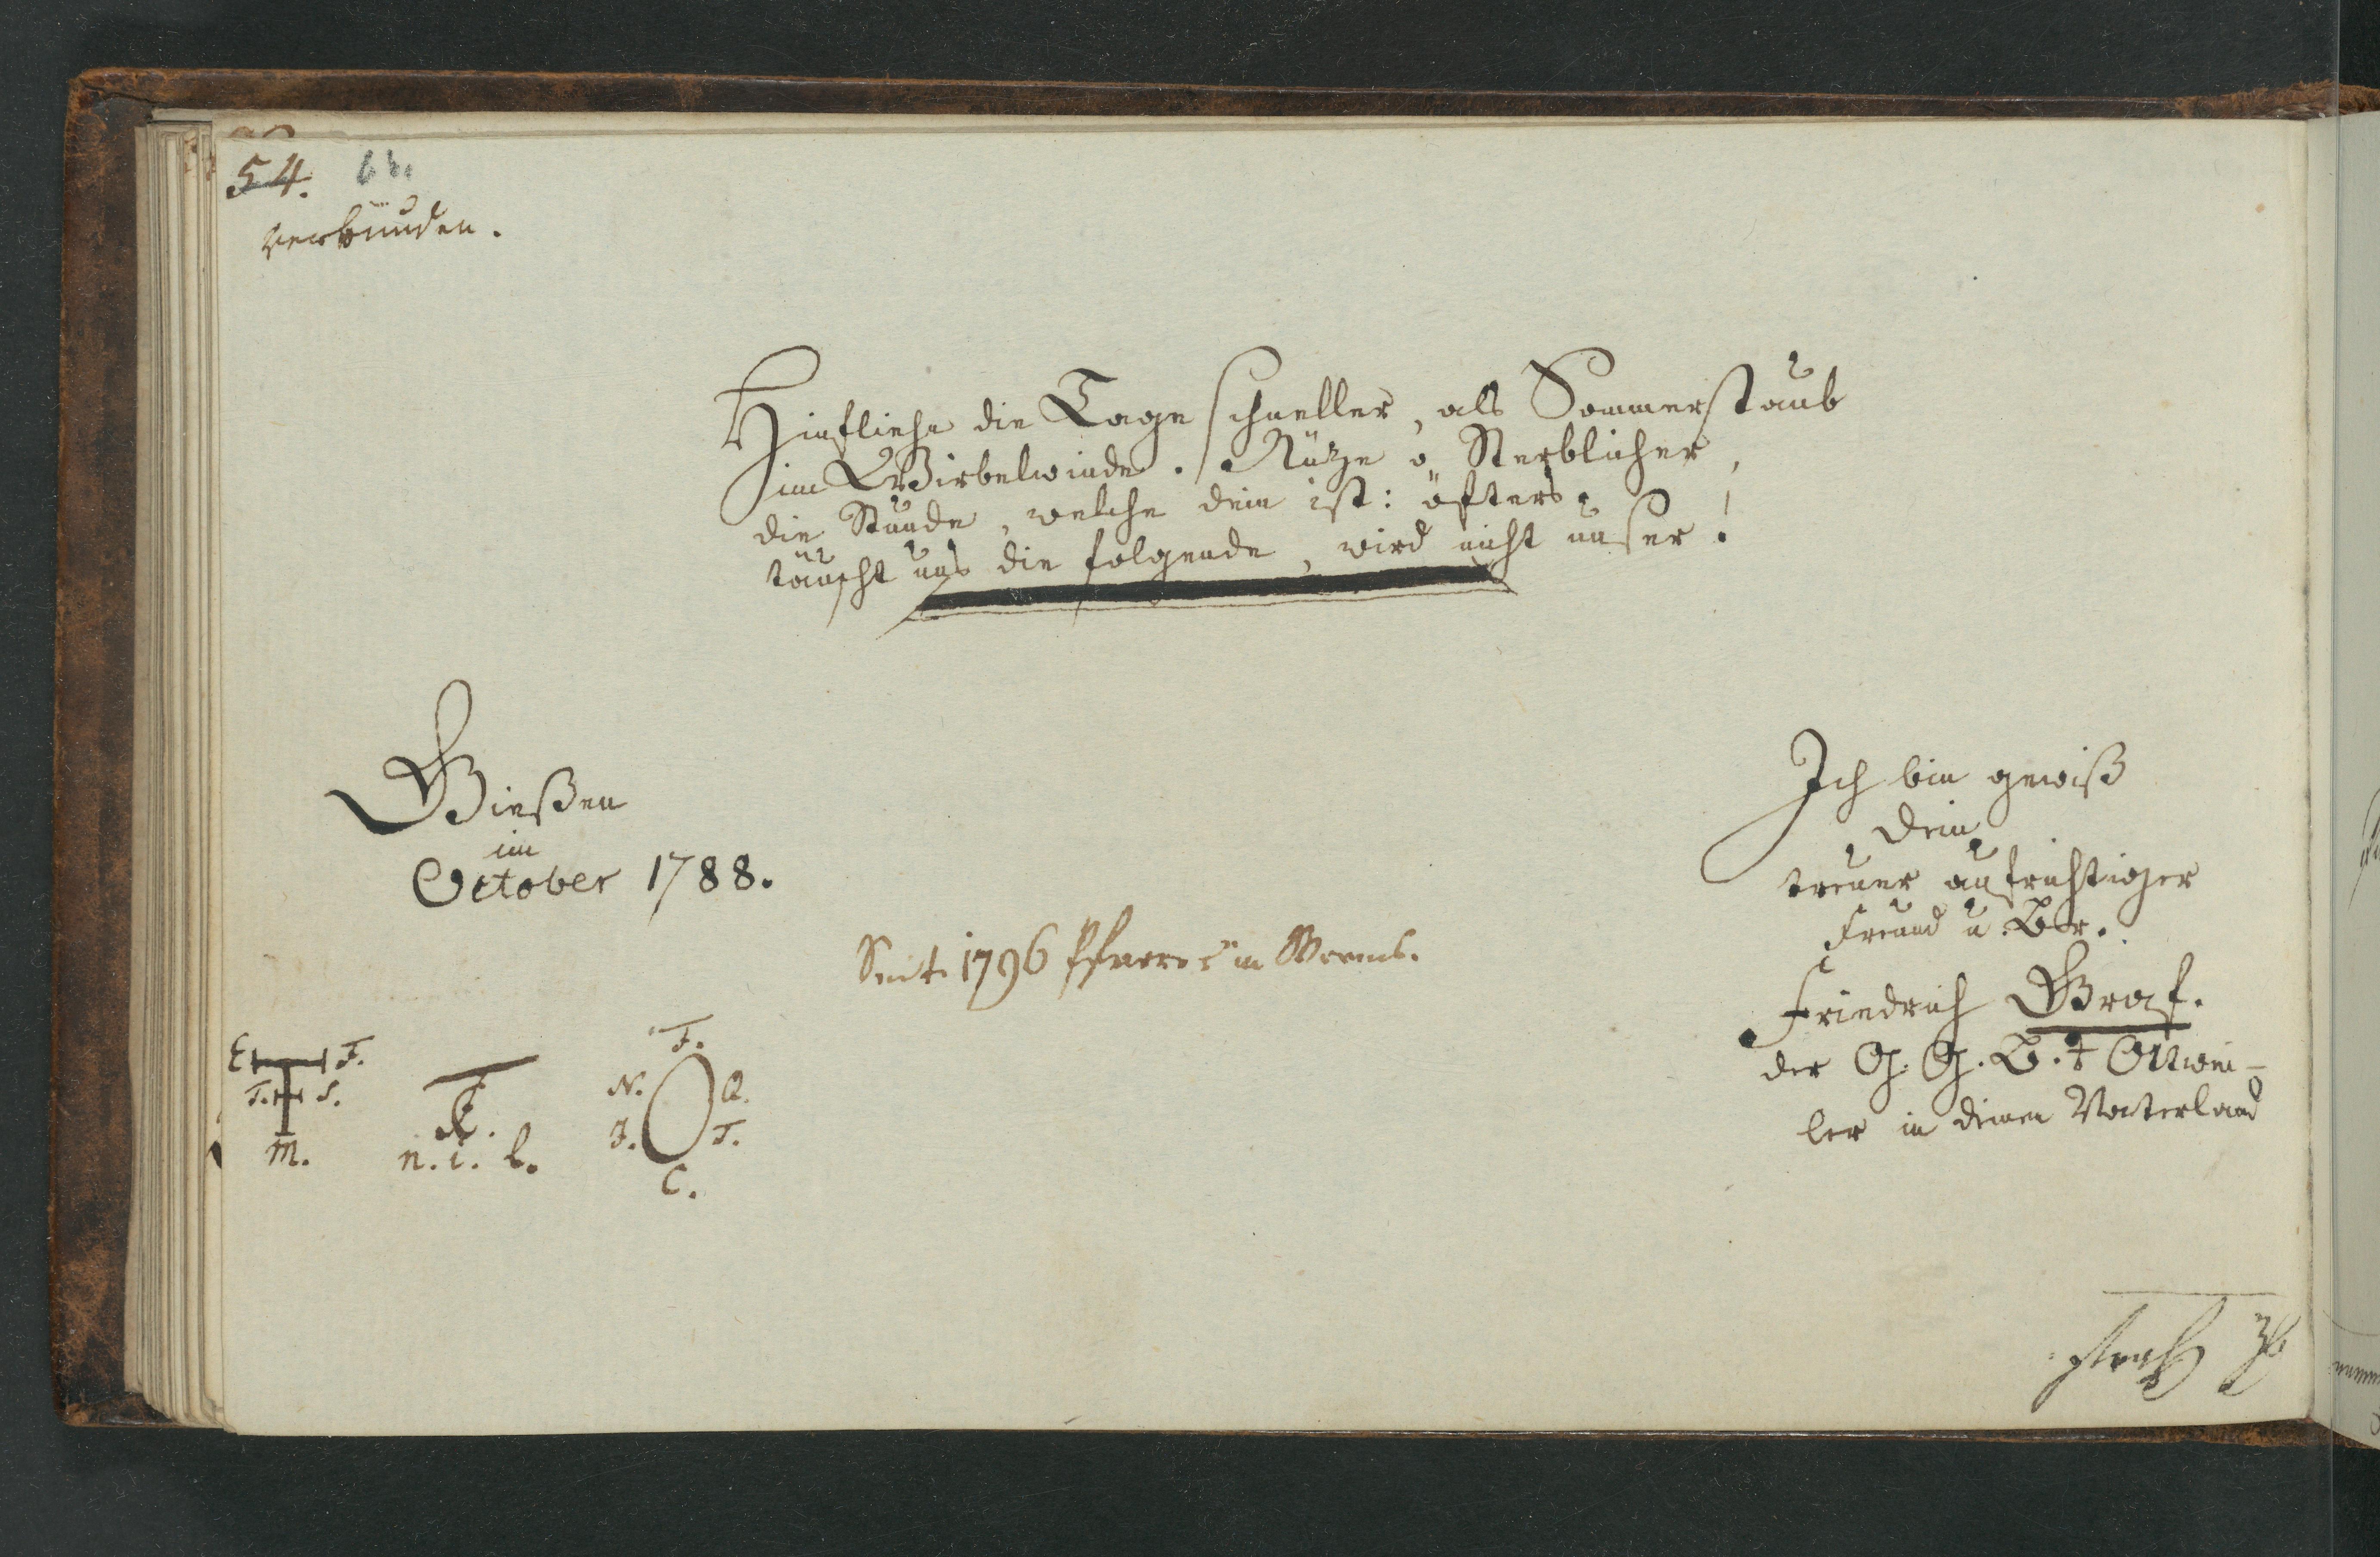 54. 68.
verbunden.
Hinfliehn die Tage schneller, als Sommerstaub
im Wirbelwinde. Nütze o Sterblicher,
die Stunde, welche dein ist: öfters
täuscht uns die folgende, wird nicht unser!
Gießen
im
October 1788.
Ich bin gewiß
Dein
treuer aufrichtiger
Freund u. Br.
Friedrich Graf.
der G. G. B. ‡ Ottwei-
ler in deinem Vaterland
Seit 1796 Pfarrer in Worms.
E F.
T. S.
M.
F.
n. i. l.
F.
N. Q.
J. T.
C.